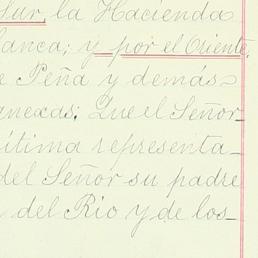 Sur, la Hacienda
lanca; y por el Oriente,
e Peña y demás
anexas: Que el Señor
ítima representa_
del Señor su padre
del Rio y de los_